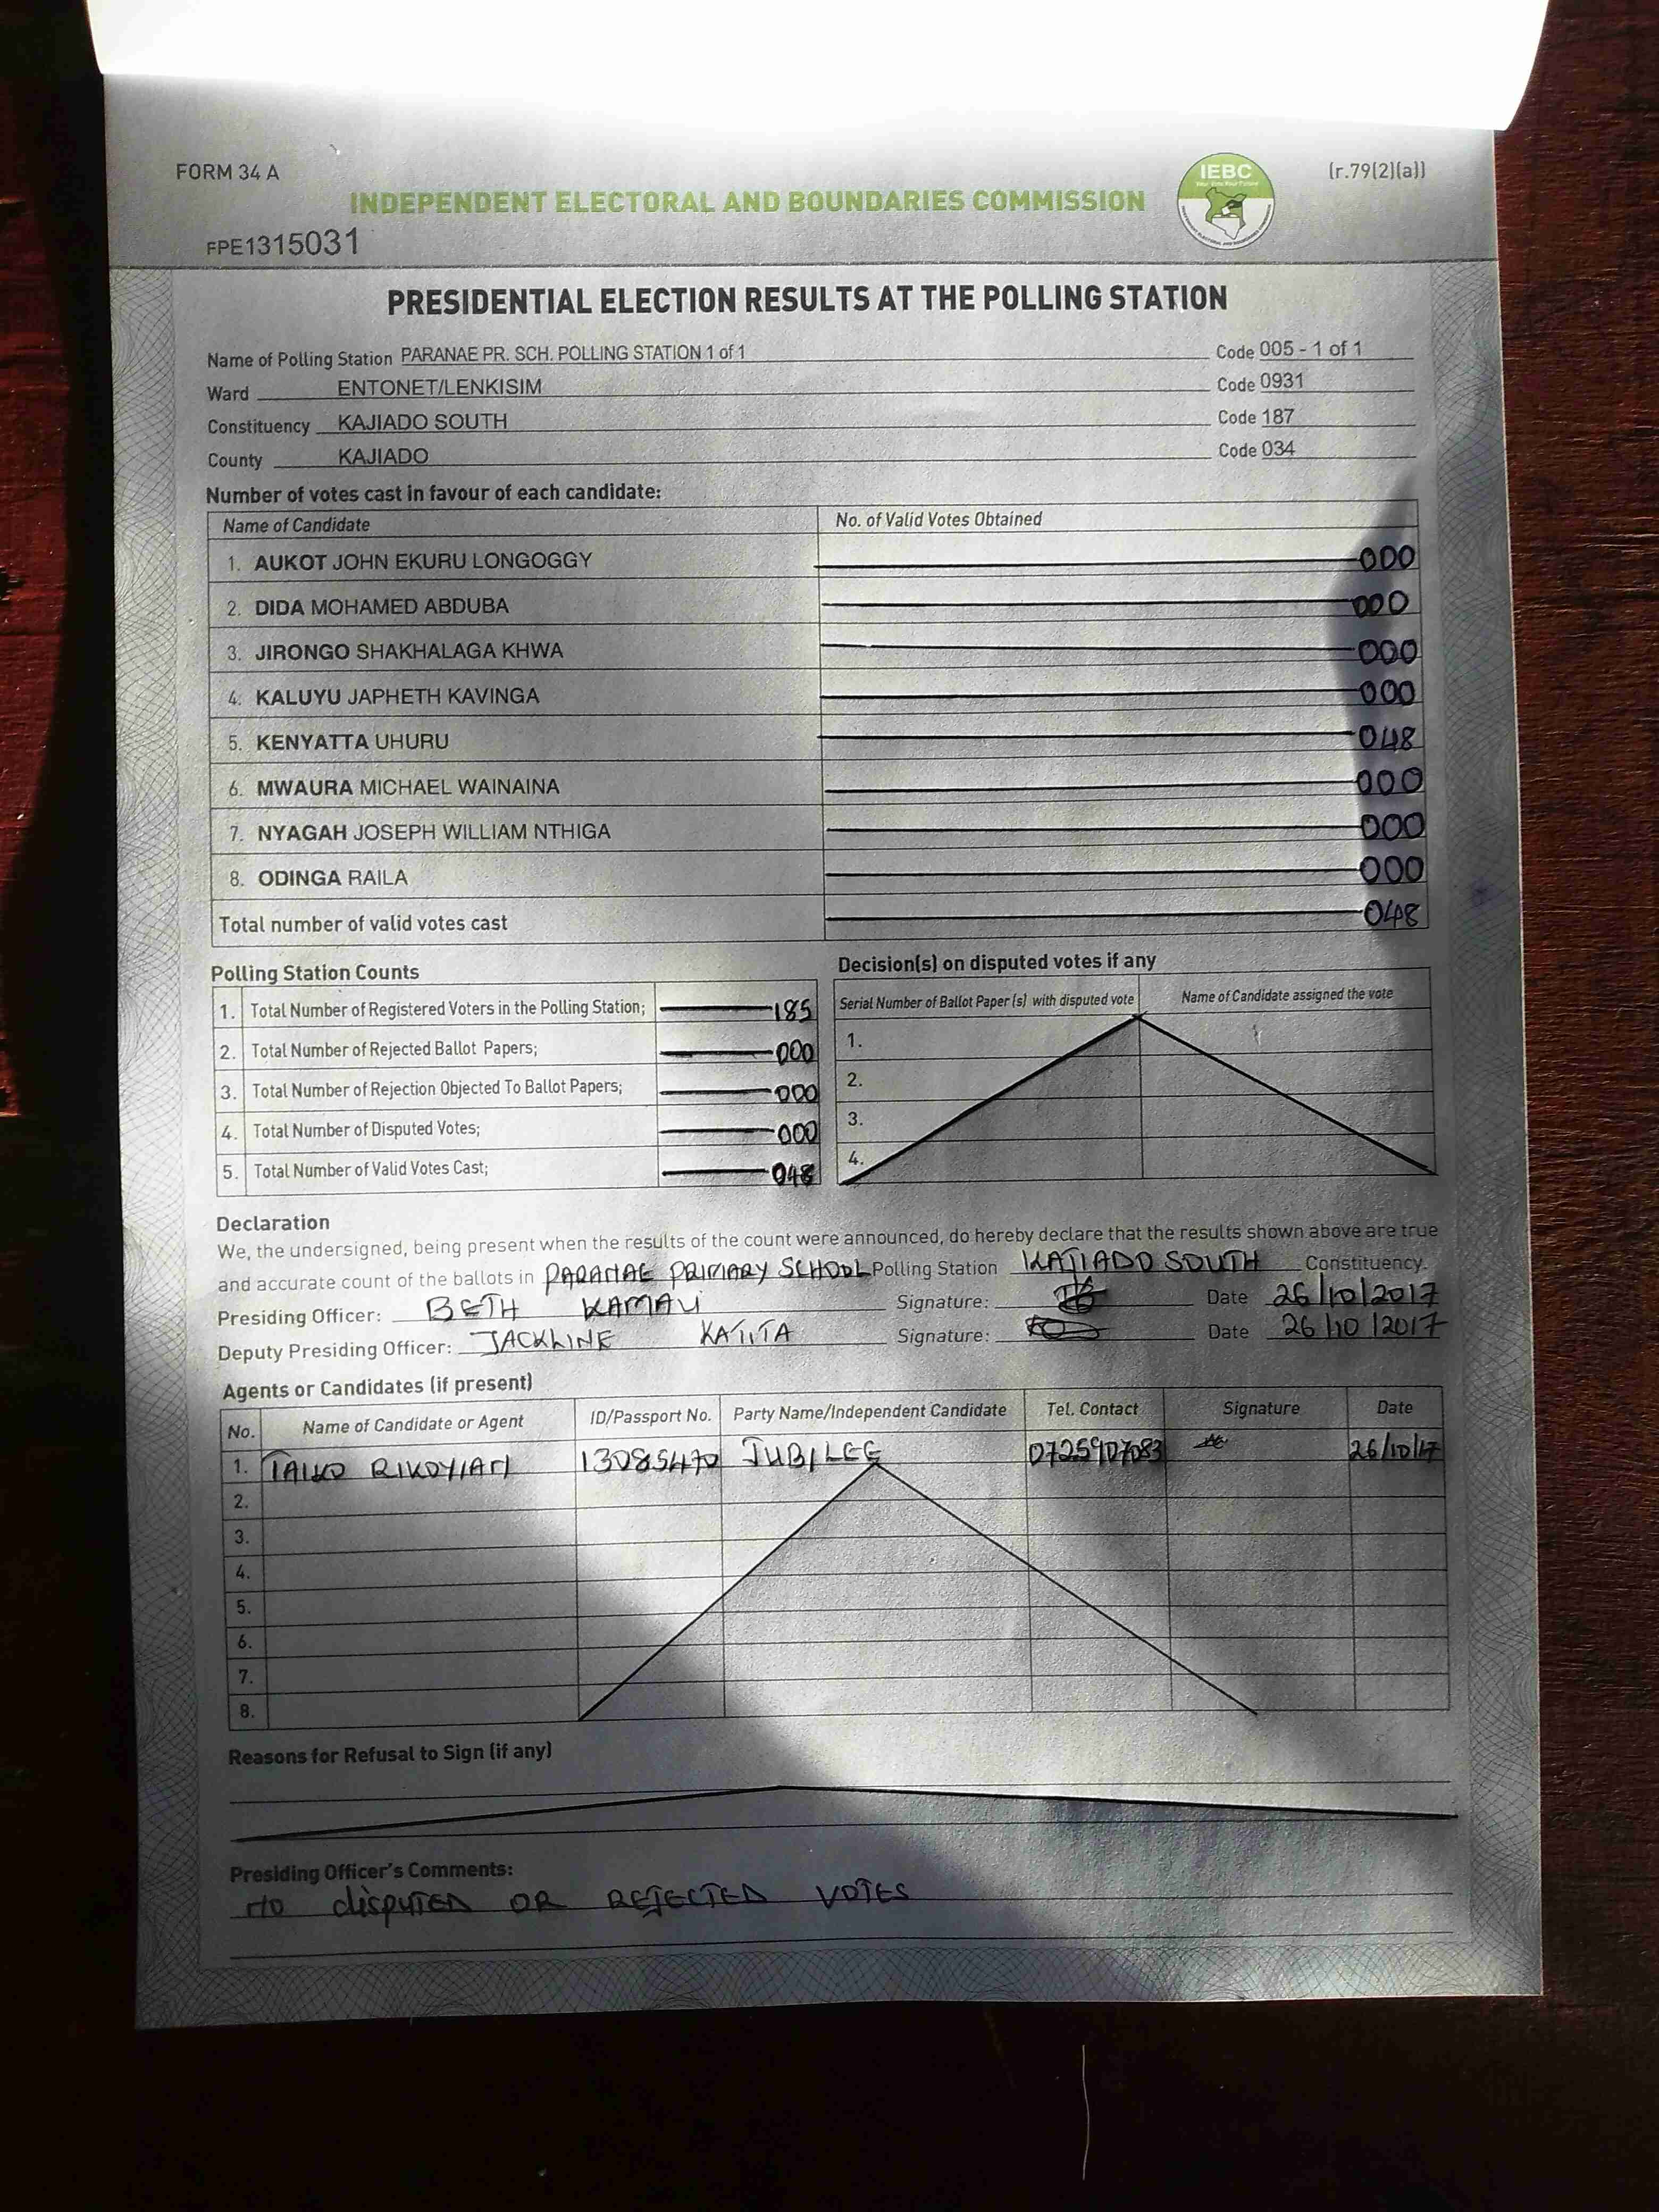 FORM 34 A
(r.79(2)(a))
IEBC
INDEPENDENT ELECTORAL AND BOUNDARIES COMMISSION
FPE1315031
PRESIDENTIAL ELECTION RESULTS AT THE POLLING STATION
Name of Polling Station PARANAE PR. SCH. POLLING STATION 1 of 1 Code 005 - 1 of 1
Ward ENTONET/LENKISIM Code 0931
Constituency KAJIADO SOUTH Code 187
County KAJIADO Code 034
Number of votes cast in favour of each candidate:
Name of Candidate No. of Valid Votes Obtained
1. AUKOT JOHN EKURU LONGOGGY 000
2. DIDA MOHAMED ABDUBA 000
3. JIRONGO SHAKHALAGA KHWA 000
4. KALUYU JAPHETH KAVINGA 000
5. KENYATTA UHURU 048
6. MWAURA MICHAEL WAINAINA 000
7. NYAGAH JOSEPH WILLIAM NTHIGA 000
8. ODINGA RAILA 000
Total number of valid votes cast 048
Polling Station Counts
1. Total Number of Registered Voters in the Polling Station; 185
2. Total Number of Rejected Ballot Papers; 000
3. Total Number of Rejection Objected To Ballot Papers; 000
4. Total Number of Disputed Votes; 000
5. Total Number of Valid Votes Cast; 048
Decision(s) on disputed votes if any
Serial Number of Ballot Paper (s) with disputed vote Name of Candidate assigned the vote
1.
2.
3.
4.
Declaration
We, the undersigned, being present when the results of the count were announced, do hereby declare that the results shown above are true
and accurate count of the ballots in PARANAE PRIMARY SCHOOL Polling Station KAJIADO SOUTH Constituency.
Presiding Officer: BETH KAMAU Signature: Date 26/10/2017
Deputy Presiding Officer: JACKLINE KATITA Signature: Date 26/10/2017
Agents or Candidates (if present)
No. Name of Candidate or Agent ID/Passport No. Party Name/Independent Candidate Tel. Contact Signature Date
1. 13085470 JUBILEE 0725907083 26/10/17
2.
3.
4.
5.
6.
7.
8.
Reasons for Refusal to Sign (if any)
Presiding Officer's Comments:
NO disputed OR REJECTED VOTES